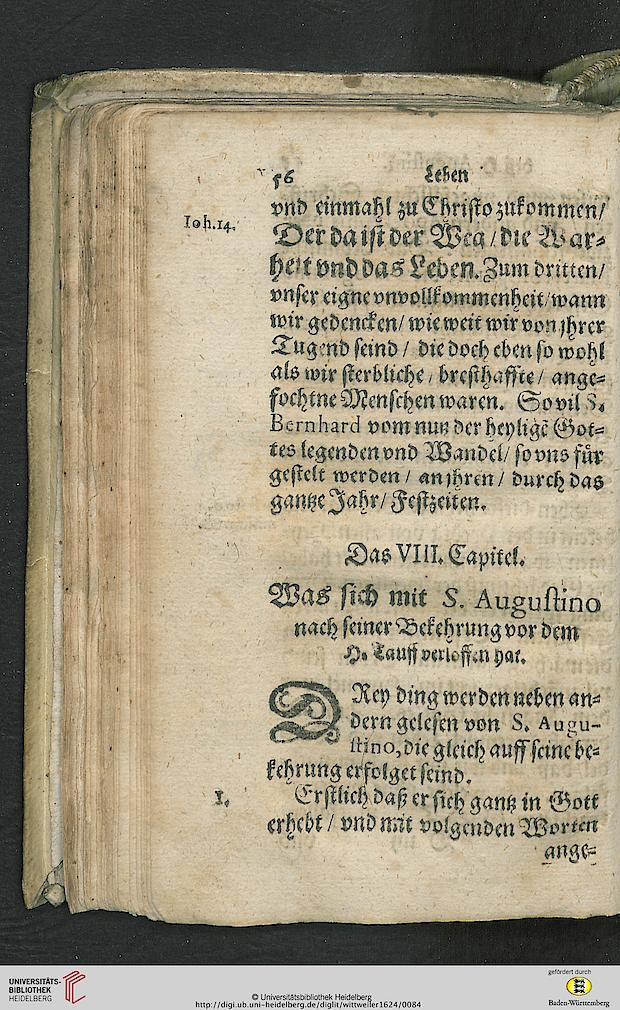 56 Leben
vnd einmahl zu Christo zukommen/
Ioh.14.
Der da ist der Weg / die War-
heit vnd das Leben. Zum dritten/
vnser eigne vnvollkommenheit/ wann
wir gedencken/ wie weit wir von jhrer
Tugend seind / die doch eben so wohl
als wir sterbliche / bresthaffte / ange-
fochtne Menschen waren. So vil S.
Bernhard vom nutz der heyligē Got-
tes legenden vnd Wandel/ so vns für
gestelt werden / an jhren / durch das
gantze Jahr/ Festzeiten.
Das VIII. Capitel.
Was sich mit S. Augustino
nach seiner Bekehrung vor dem
H. Tauff verloffen hat.
DRey ding werden neben an-
dern gelesen von S. Augu-
stino, die gleich auff seine be-
kehrung erfolget seind.
I. Erstlich daß er sich gantz in Gott
erhebt / vnd mit volgenden Worten
ange-
UNIVERSITÄTS-
BIBLIOTHEK
HEIDELBERG
© Universitätsbibliothek Heidelberg
http://digi.ub.uni-heidelberg.de/diglit/wittweiler1624/0084
gefördert durch
Baden-Württemberg